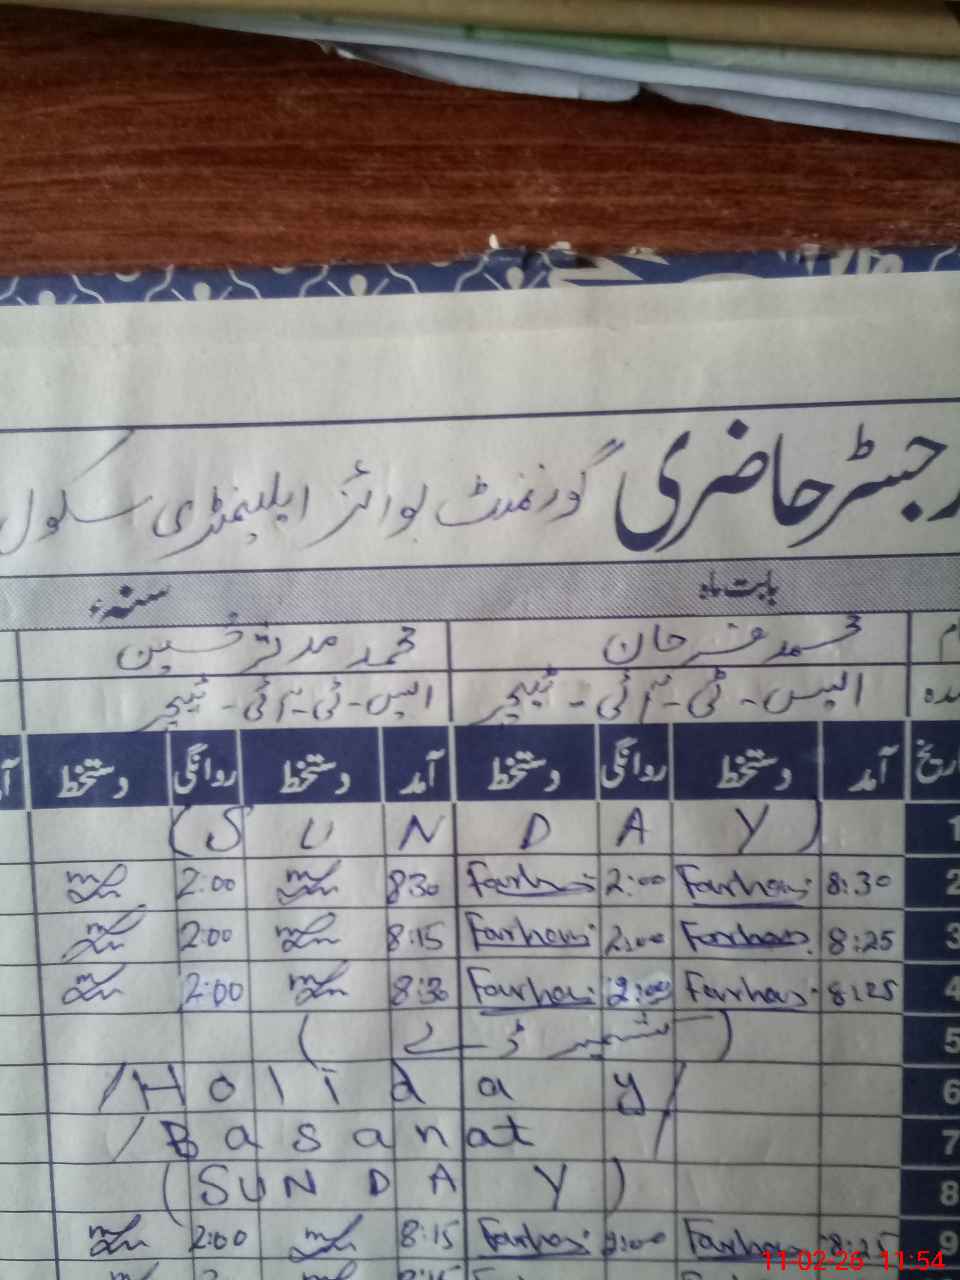 رجسٹر حاضری گورنمنٹ بوائز ایلیمنٹری سکول
بابت ماہ سنہء
محمد مدثر حسین
ایس-ٹی-آئی-ٹیچر ایس-ٹی-آئی-ٹیچر
آمد دستخط روانگی دستخط آمد دستخط روانگی دستخط
1 (SUNDAY)
2 8:30 Farhan 2:00 8:30 2:00
3 8:25 Farhan 2:00 Farhan 8:15 2:00
4 8:25 Farhan 2:00 Farhan 8:30 2:00
5 (کشمیر ڈے)
6 /Holiday/
7 /Basanat/
8 (SUNDAY)
9 8:15 Farhan 2:00 Farhan 8:15 2:00
11-02-26 11:54